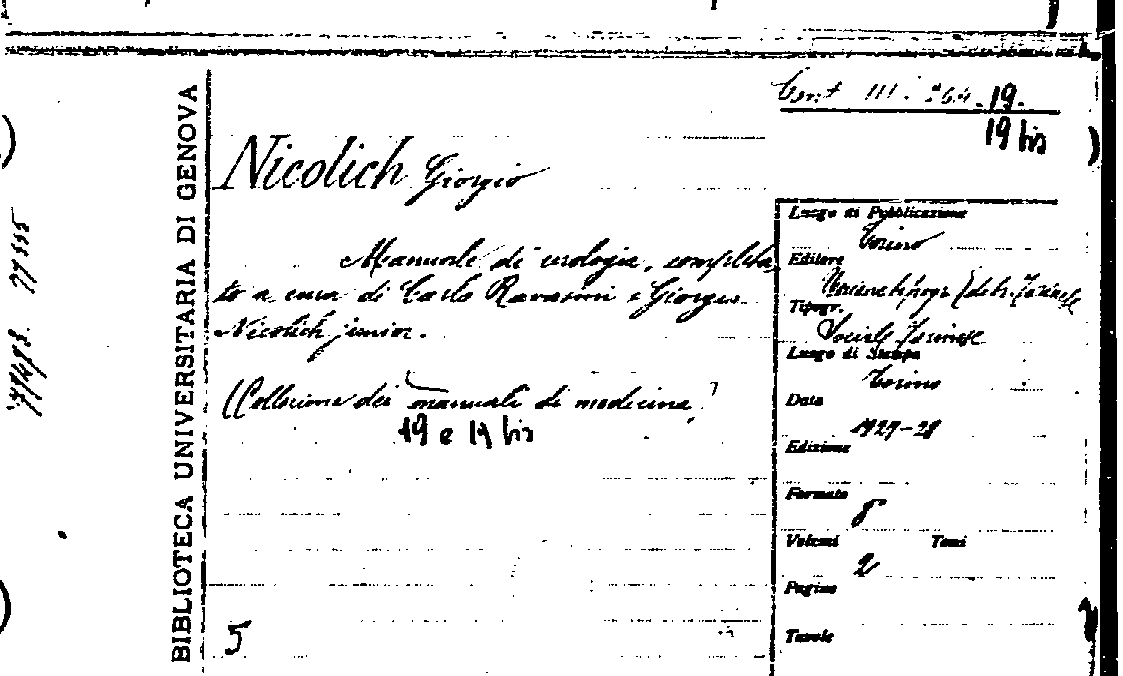 BIBLIOTECA UNIVERSITARIA DI GENOVA
Cont III. 264.19.
19 bis
Nicolich Giorgio
Manuale di urologia, completa
to a cura di Carlo Ravasini e Giorgio
Nicolich junior.
(Collezione dei manuali di medicina,
19 e 19 bis
5
Luogo di Pubblicazione
Torino
Editore
Unione tipogr. Edit. Torinese
Tipogr.
Sociale Torinese
Luogo di Stampa
Torino
Data
1927-28
Edizione
Formato
8
Volumi Tomi
2
Pagine
Tavole